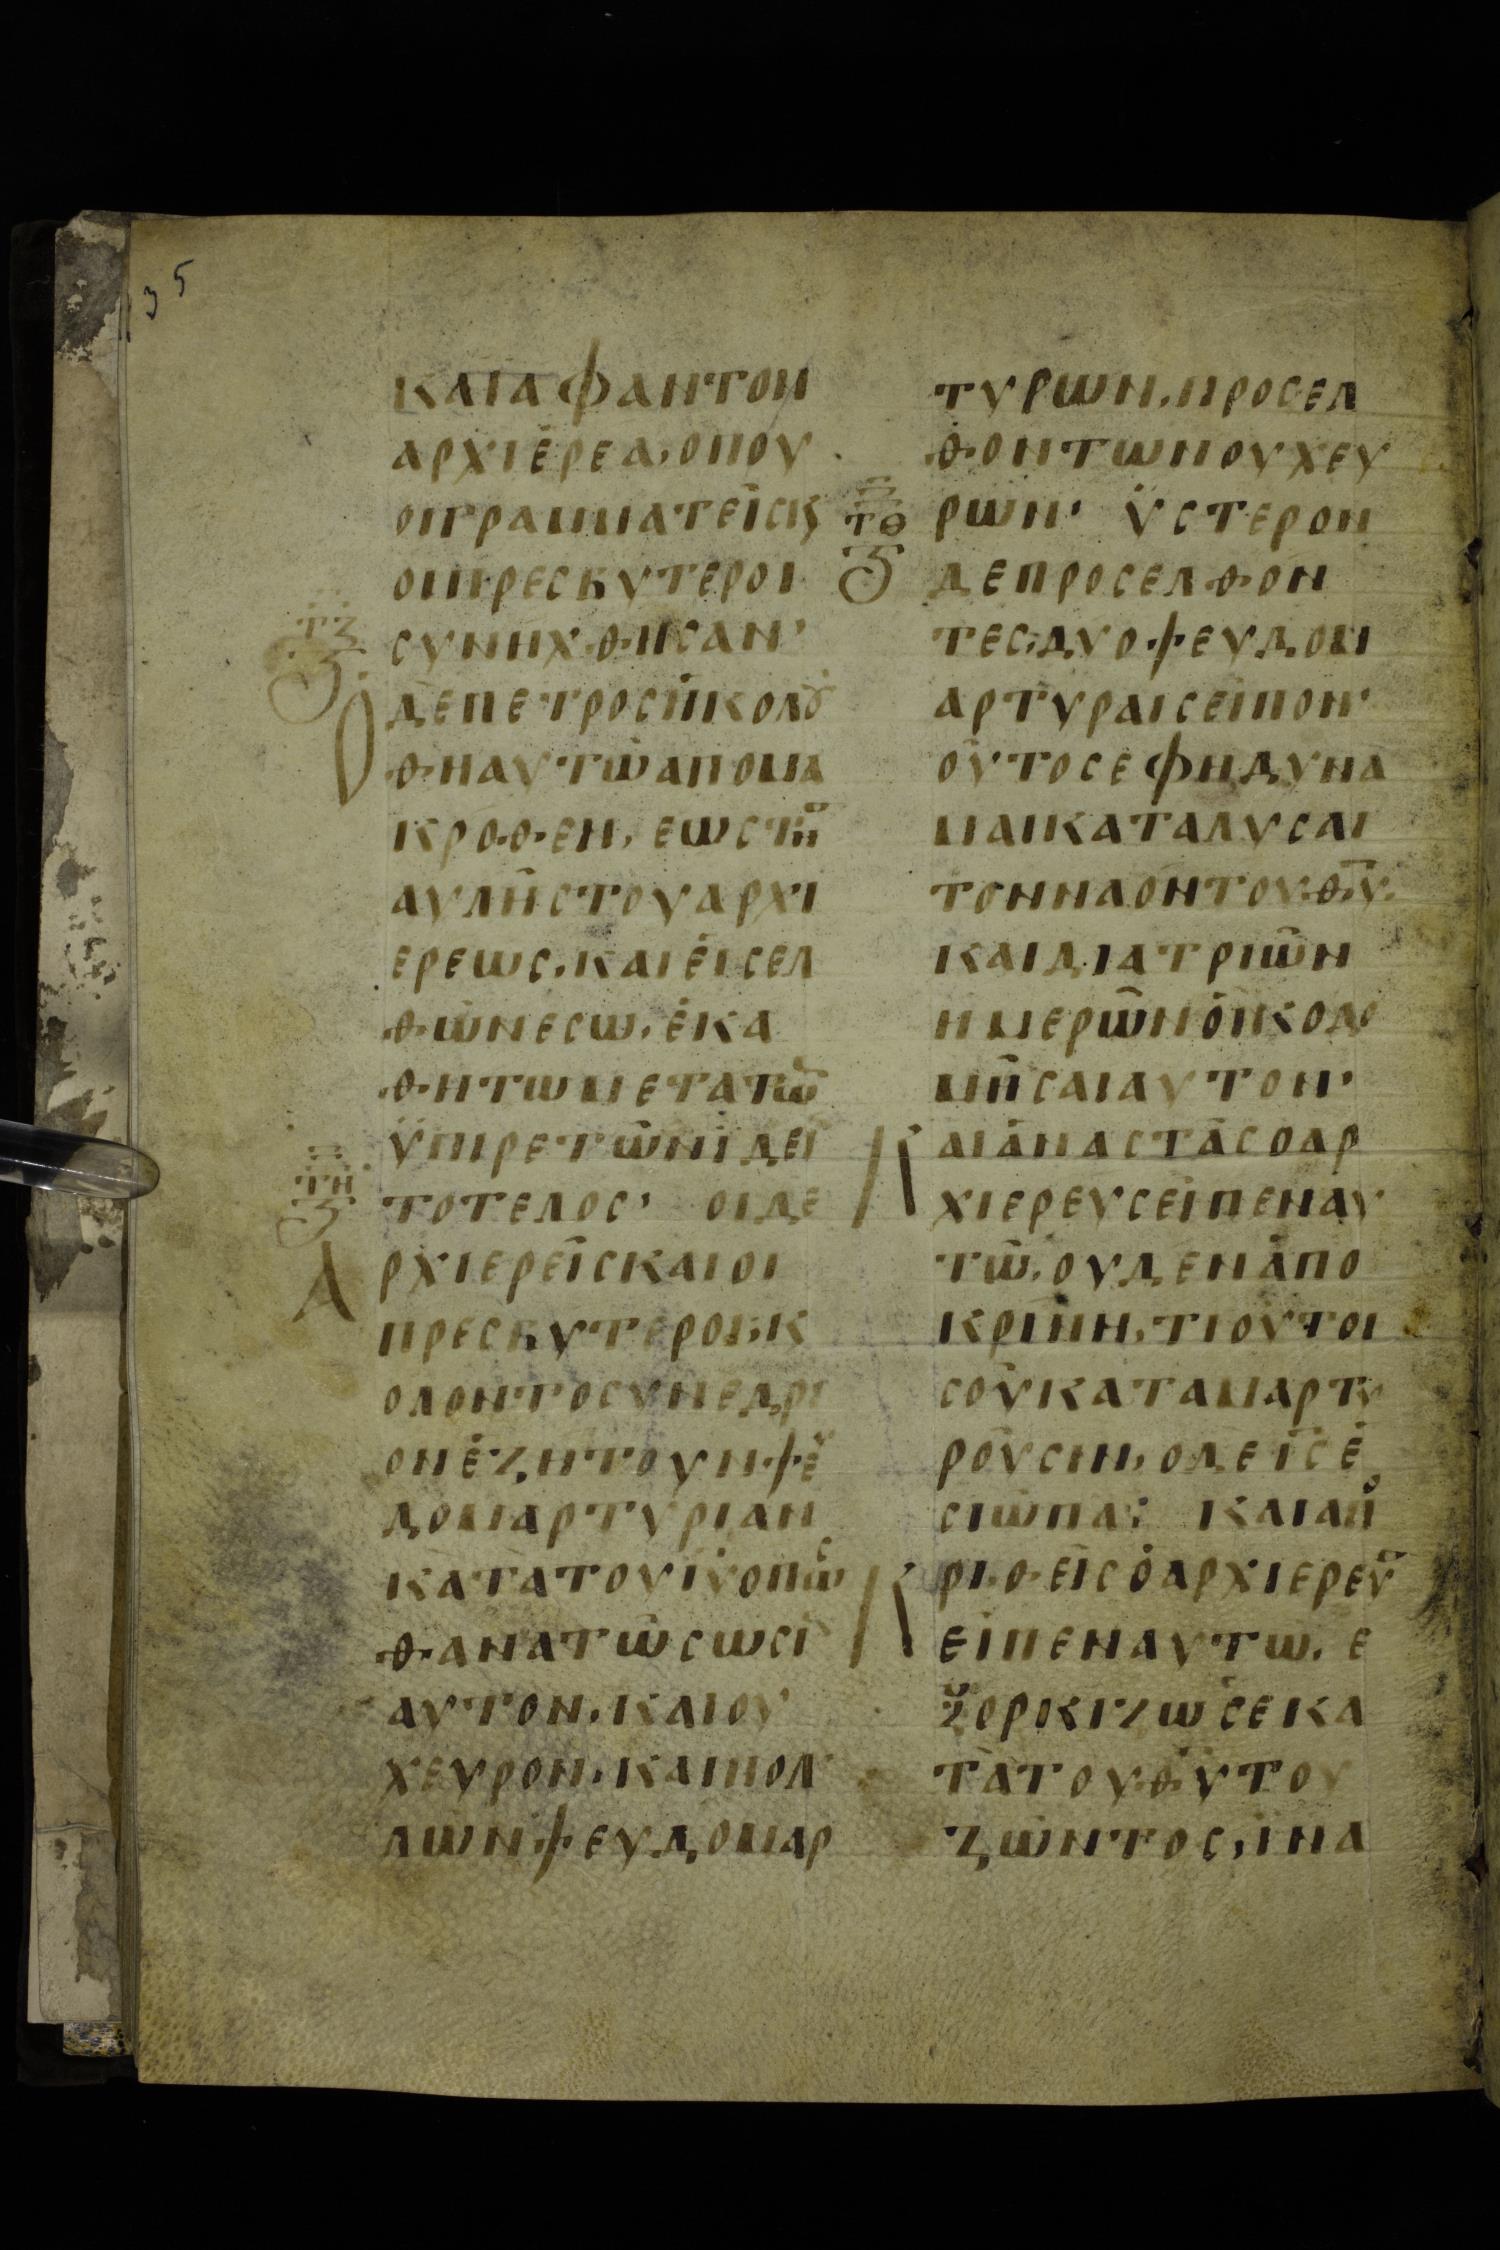 35
ΚΑΙΑΦΑΝΤΟΝ
ΑΡΧΙΕΡΕΑ, ΟΠΟΥ
ΟΙΓΡΑΜΜΑΤΕΙΣΚϗ
ΟΙΠΡΕΣΒΥΤΕΡΟΙ
ΣΥΝΗΧΘΗΣΑΝ·
Ο
ΔΕΠΕΤΡΟΣΗΚΟΛΟΥ
ΘΗΑΥΤΩΑΠΟΜΑ
ΚΡΟΘΕΝ, ΕΩΣΤΗ
ΑΥΛΗΣΤΟΥΑΡΧΙ
ΕΡΕΩΣ, ΚΑΙΕΙΣΕΛ
ΘΩΝΕΣΩ, ΕΚΑ
ΘΗΤΩΜΕΤΑΤΩ
ΫΠΙΡΕΤΩΝΙΔΕΙ
ΤΟΤΕΛΟΣ· ΟΙΔΕ
ΤΗ
ΑΡΧΙΕΡΕΙΣΚΑΙΟΙ
ΠΡΕΣΒΥΤΕΡΟΙ, Κ
ΟΛΟΝΤΟΣΥΝΕΔΡΙ
ΟΝΕΖΗΤΟΥΝΨΕΥ
ΔΟΜΑΡΤΥΡΙΑΝ
ΚΑΤΑΤΟΥΙΥΟΠΩΣ
ΘΑΝΑΤΩΣΩΣΙ
ΑΥΤΟΝ, ΚΑΙΟΥ
ΧΕΥΡΟΝ, ΚΑΙΠΟΛ
ΛΩΝΨΕΥΔΟΜΑΡ
ΤΥΡΩΝ, ΠΡΟΣΕΛ
ΘΟΝΤΩΝΟΥΧΕΥ
ΤΘ
ΡΩΝ· ΫΣΤΕΡΟΝ
ΔΕΠΡΟΣΕΛΘΟΝ
ΤΕΣ, ΔΥΟΨΕΥΔΟΜ
ΑΡΤΥΡΑΙΣΕΙΠΟΝ·
ΟΥΤΟΣΕΦΗΔΥΝΑ
ΜΑΙΚΑΤΑΛΥΣΑΙ
ΤΟΝΝΑΟΝΤΟΥΘΥ.
ΚΑΙΔΙΑΤΡΙΩΝ
ΗΜΕΡΩΝΟΙΚΟΔΟ
ΜΗΣΑΙΑΥΤΟΝ·
ΚΑΙΑΝΑΣΤΑΣΟΑΡ
ΧΙΕΡΕΥΣΕΙΠΕΝΑΥ
ΤΩ, ΟΥΔΕΝΑΠΟ
ΚΡΙΝΗ, ΤΙΟΥΤΟΙ
ΣΟΥΚΑΤΑΜΑΡΤΥ
ΡΟΥΣΙΝ, ΟΔΕΙΣΕ
ΣΙΩΠΑ: ΚΑΙΑΠΟ
ΚΡΙΘΕΙΣΟΑΡΧΙΕΡΕΥ
ΕΙΠΕΝΑΥΤΩ, Ε
ΞΟΡΚΙΖΩΣΕΚΑ
ΤΑΤΟΥΘΥΤΟΥ
ΖΩΝΤΟΣ, ΙΝΑ